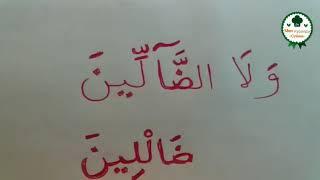 وَلَا الضَّآلِّينَ
ضَالْلِينَ